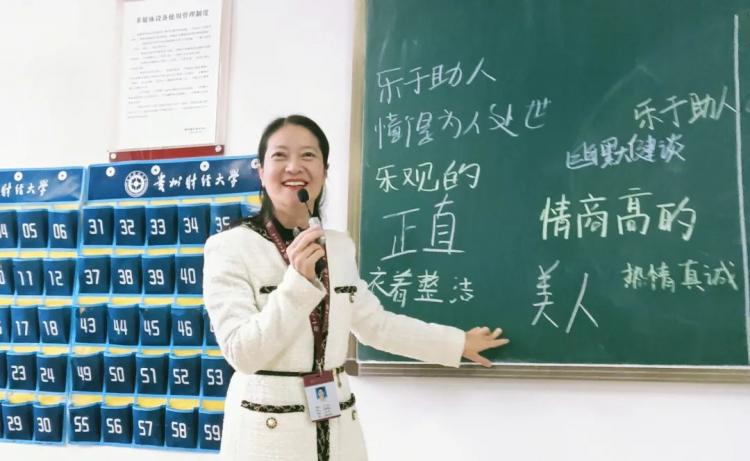 多媒体设备使用管理制度
财经大学
贵州财经大学
04 05 06
11 12
17 18
23 24
29 30
31 32 33 34 35
37 38 39 40
43 44 45 46
49 50 51 52 53
55 56 57 58 59
乐于助人
懂得为人处世
乐观的
正直
衣着整洁
乐于助人
幽默健谈
情商高的
热情真诚
美人